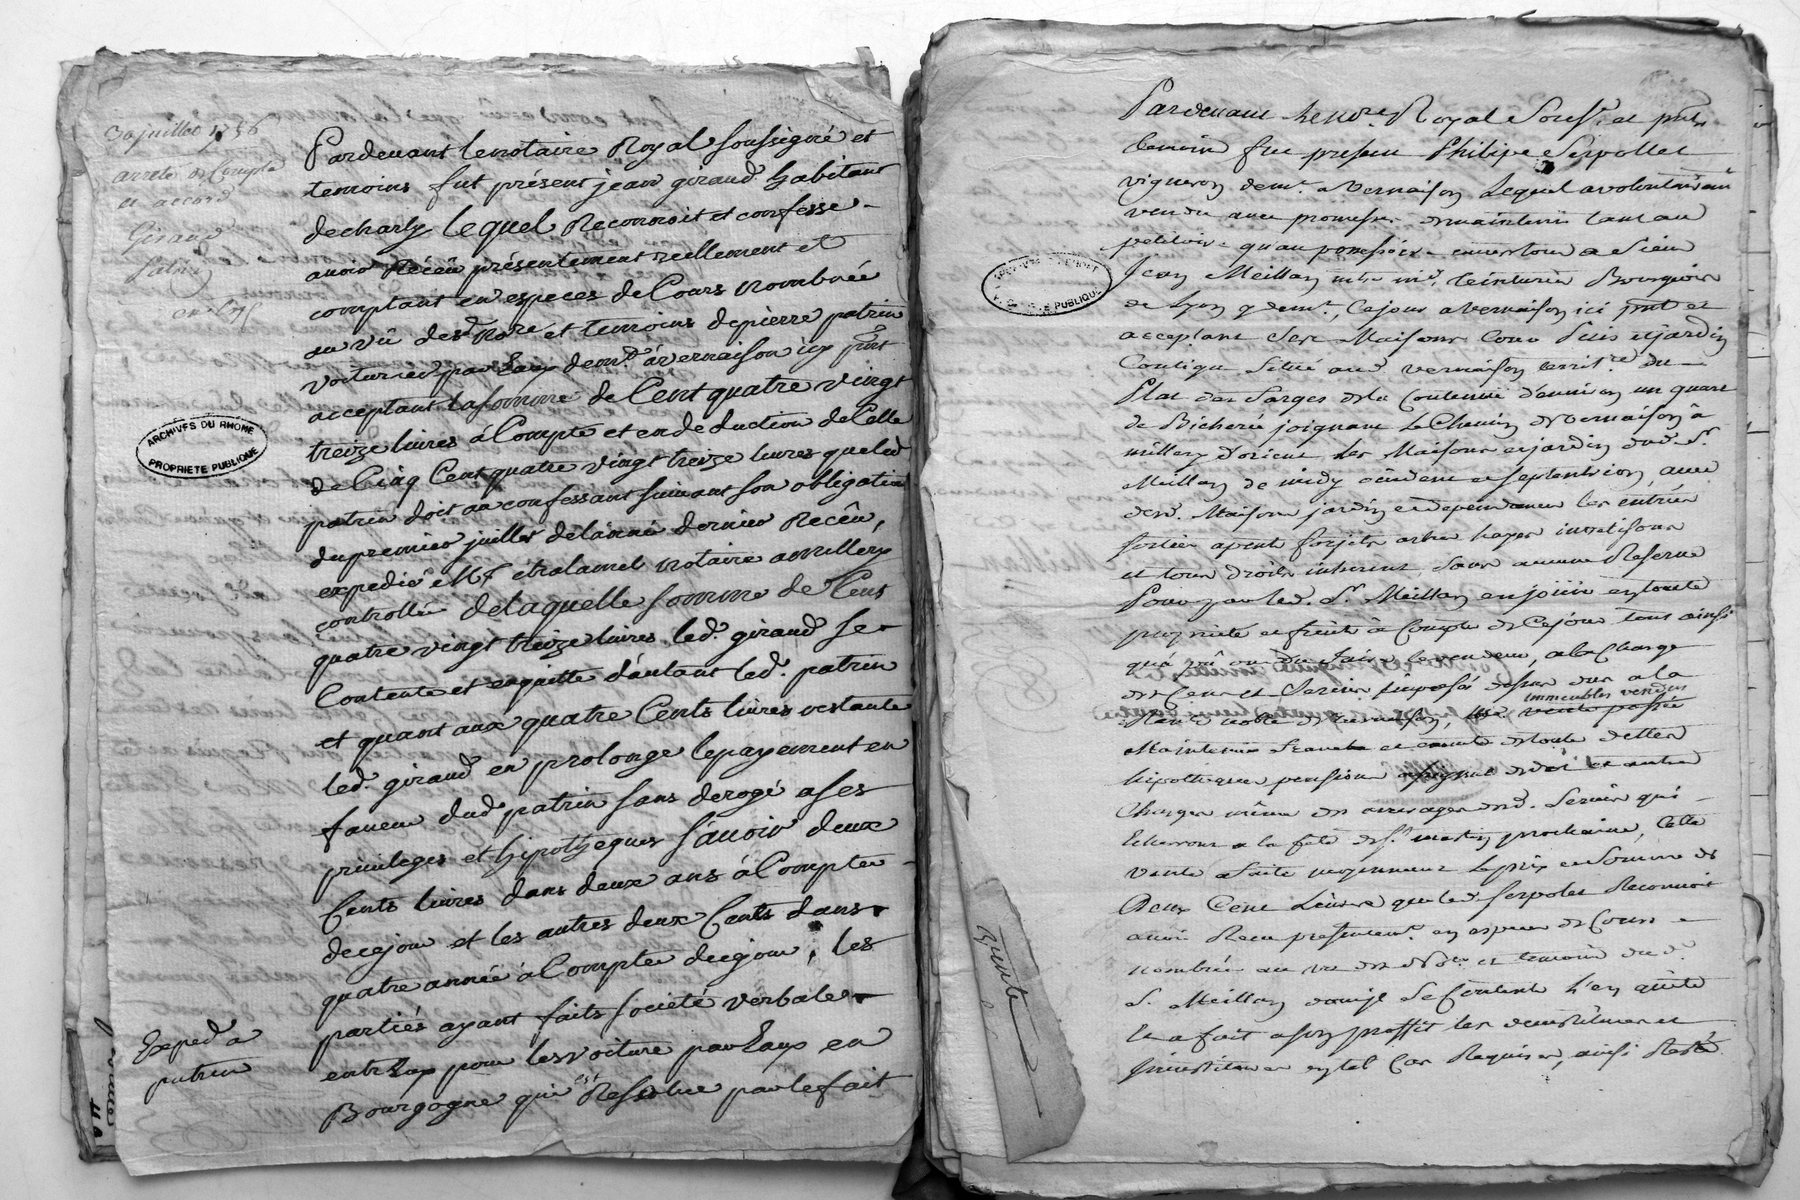 30 juillet 1756
arreté de Compte
et accord
Giraud
patrin
Pardevant le notaire Royal soussigné et
temoins fut présent jean giraud habitant
de charly lequel Reconnoit et confesse
avoir Recéu présentement reellement et
comptant en especes de Cours nombrée
au vû desd. Nore et temoins de pierre patrin
voiturier par Eaux demt. à vernaison icy pnt
acceptant la somme de Cent quatre vingt
treize livres à Compte et en deduction de Celle
de Cinq Cent quatre vingt treize livres que led
patrin doit au confessant suivant son obligation
du premier juillet de l'anné dernier Recêu,
expedié par Me notaire a millery
controllé de laquelle somme de Cent
quatre vingt treize livres led. giraud se
Contente et en quitte d'autant led. patrin
et quant aux quatre Cents livres restante
led. giraud en prolonge le payement en
faveur dud. patrin sans derogé a ses
privileges et hipotheques sçavoir deux
Cents livres dans deux ans à Compter
de ce jour et les autres deux Cents dans
quatre année à Compter de ce jour, les
partiés ayant faits societé verbale
entr'Eux pour les voiture par Eaux en
Bourgogne qui est Resolue par le fait
Exped. a
patrin
ARCHIVES DU RHONE
PROPRIETE PUBLIQUE
Pardevant le Nore. Royal Souss. et pnts
temoin fut present Philipe Serpollet
vigneron demt. a Vernaison Lequel a volontairemt
vendu avec promesse de maintenir tant au
petitoire qu'au possessoire envers tous a Sieur
Jean Meillan me teinturier Bourgeois
de Lyon y demt., Ce jour a vernaison ici pnt et
acceptant Ses Maison Cour Puis et jardin
Contigu Situé aud. vernaison territre. du
Plat des Sarges de la Contenue d'environ un quart
de Bicherée joignant Le Chemin de Vernaison à
millery d'orient les Maisons et jardin dud. Sr.
Meillan de midy occident et septentrion, avec
desd. Maison jardin et dependances les entrées
sorties
et tous droits inherents, Sans aucune Reserve
Pour par led. Sr. Meillan en jouir en toute
proprieté et fruits à Compter de Ce jour tout ainsi
le vendeur, a la Charge
des Cens et Servis imposés dessus dus a la
immeubles vendus
Rante noble de vernaison, vente passée
Maintenus francs et de toute dettes
hipotheques pension et autres
Charges même des arrerages desd. Servis qui
Echerront a la fête de St. martin prochaine, Cette
vente a Faite moyennant Le prix et Somme de
Deux Cent Livres que led Serpolet Reconnoit
avoir Recu presentemt. en especes de Cours
nombrée au vu desd Nore et temoins dud.
Sr. Meillan dont il Se Contente L'en quitte
Et a fait a son proffit les demissions et
investitures en tel Cas Requises, ainsi Resté
ARCHIVES DU RHONE
PROPRIETE PUBLIQUE